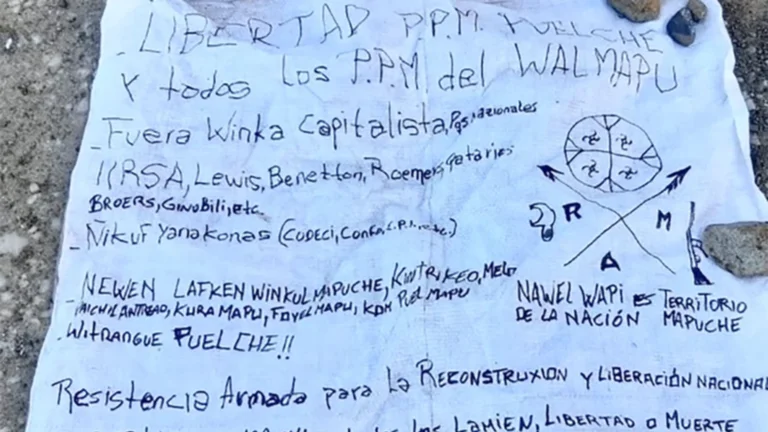 - LIBERTAD P.P.M. PUELCHE
Y todos los P.P.M del WALMAPU
- Fuera Winka Capitalista,
IIRSA, Lewis, Benetton, Roemers, qataries
BROERS, GINOBILI, etc.
- Ñikuf Yanakonas (CODECI,
- NEWEN LAFKEN WINKUL MAPUCHE, KINTRIKEO,
KURA MAPU, FOYEL MAPU, KDM PUEL MAPU
- WITRANGUE PUELCHE!!
R M
A
NAWEL WAPI es TERRITORIO
DE LA NACIÓN MAPUCHE
Resistencia Armada para La RECONSTRUXION y LIBERACIÓN NACIONAL
LAMIEN, LIBERTAD O MUERTE